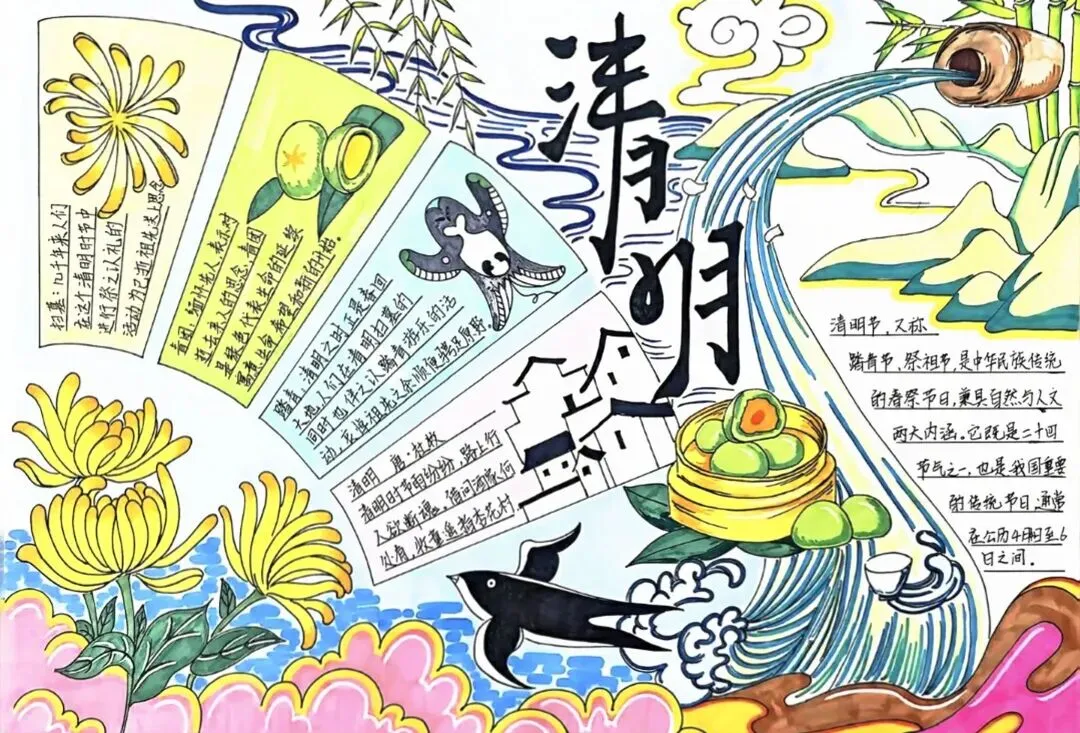 清明
扫墓:几千年来人们
在这个清明时节中
进行祭之认礼的
活动为已逝祖先送上思念
青团,缅怀先人,表示对
逝去亲人的思念,青团
是绿色代表生命的延续
寓意生命希望和新的开始。
踏青,清明之时正是春回
大地,人们在清明扫墓的
同时也伴之认踏青游乐的活
动,哀悼祖先之余顺便
清明 唐·杜牧
清明时节雨纷纷,路上行
人欲断魂,借问酒家何
以有,牧童遥指杏花村
清明节,又称
踏青节、祭祖节,是中华民族传统
的春祭节日,兼具自然与人文
两大内涵。它既是二十四
节气之一,也是我国重要
的传统节日,通常
在公历4月4日至6
日之间。